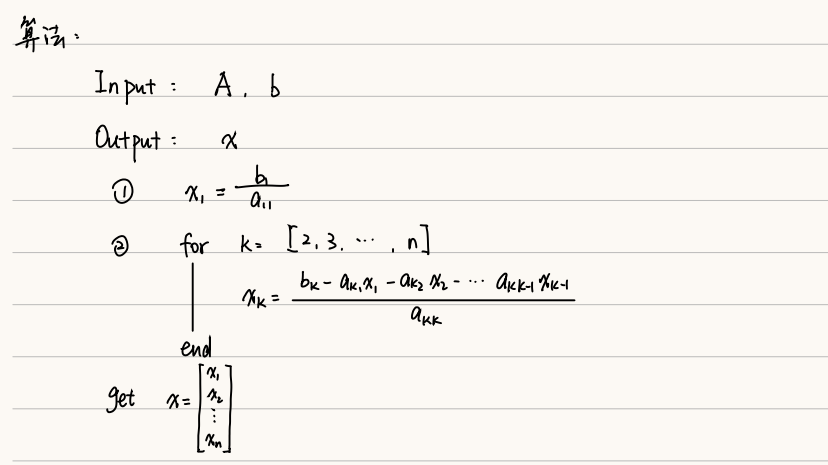 算法：
Input : A , b
Output : x
① x₁ = b₁ / a₁₁
② for k = [2, 3, ⋯ , n]
xₖ = (bₖ - aₖ₁x₁ - aₖ₂x₂ - ⋯ aₖₖ₋₁xₖ₋₁) / aₖₖ
end
get x = [x₁ x₂ ⋮ xₙ]